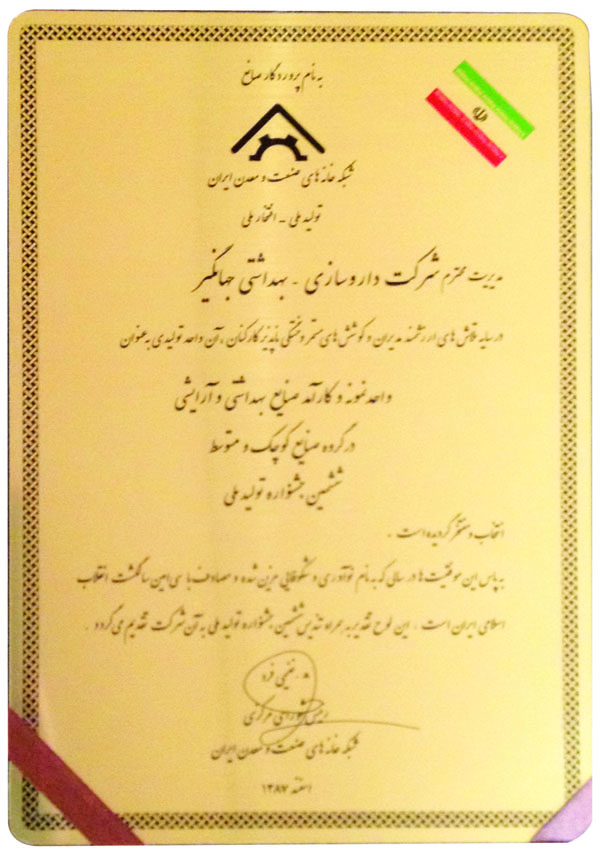 به نام پروردگار صانع
شبکه خانه های صنعت و معدن ایران
تولید ملی - افتخار ملی
مدیریت محترم شرکت داروسازی - بهداشتی جهانگیر
در سایه تلاش های ارزشمند مدیران و کوشش های مستمر و خستگی ناپذیر کارکنان ، آن واحد تولیدی به عنوان
واحد نمونه و کارآمد صنایع بهداشتی و آرایشی
در گروه صنایع کوچک و متوسط
ششمین جشنواره تولید ملی
انتخاب و مفتخر گردیده است .
به پاس این موفقیت ها در سالی که به نام نوآوری و شکوفایی مزین شده و مصادف با سی امین سالگشت انقلاب
اسلامی ایران است ، این لوح تقدیر به همراه تندیس ششمین جشنواره تولید ملی به آن شرکت تقدیم می گردد .
نفیسی فرد
رییس شورای مرکزی
شبکه خانه های صنعت و معدن ایران
اسفند ۱۳۸۷